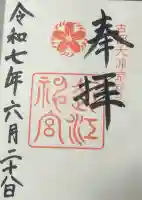 奉拝
近江
神宮
令和七年六月二十八日